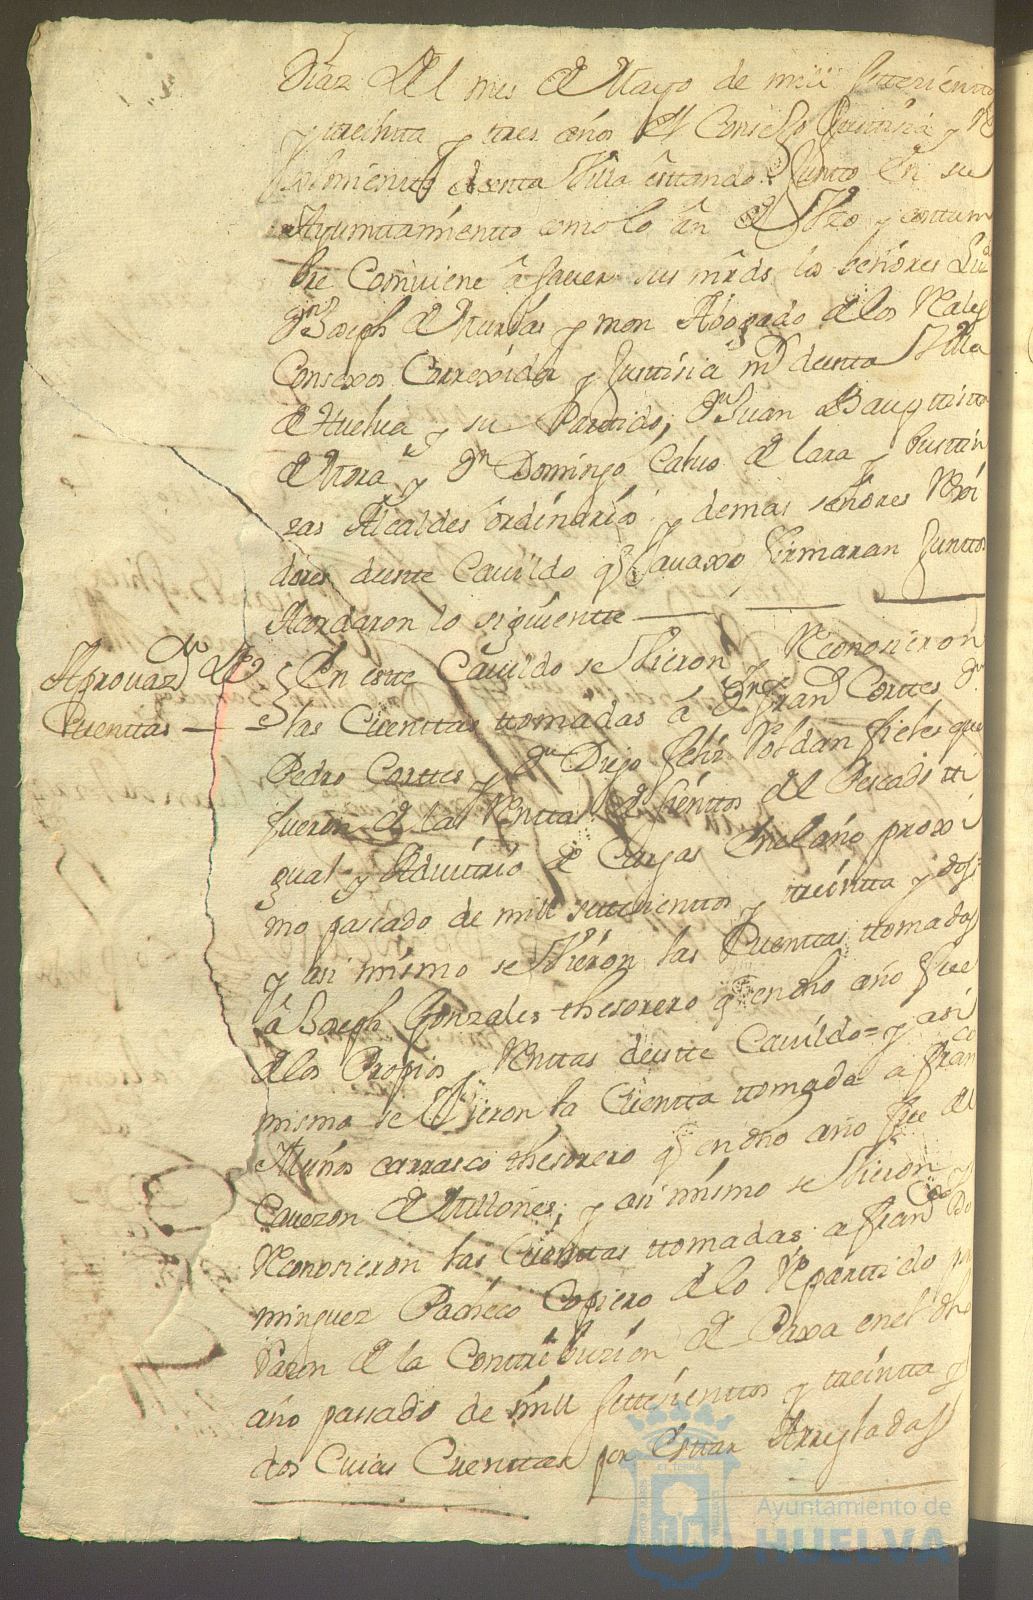 Diaz del mes de Mayo de mill settesientos
y treinta y tres años el Consejo Justisia y Re
ximiento desta Villa estando Junto en su
Ayuntamiento como lo an de Uzo y costum
bre Combiene â saver sus mrds. los señores Lizdo
Dn Joseph de Murtas y mon Abogado de los Reales
Consexos Correxidor y Justisia mor desta Villa
de Huelva y su Partido, Dn Juan Bauptista
de Mora y Dn Domingo Calvo de lara y
zas Alcaldes ordinarios y demas señores Rexi
dores deste Cavildo q avaxo firmaran Junttos
Acordaron lo siguiente
Aprovazon de
Cuenttas
En este Cavildo se Vieron y Reconosieron
las Cuenttas ttomadas â Dn Frando Corttes Dn
Pedro Corttes y Dn Diego feliz Roldan fieles que
fueron de las Renttas de sienttos del Pescado tti
gual y Advitrio de Cargas En el año proxi
mo passado de mill settesienttos y treintta y dos
y asi mismo se Vieron las Cuenttas ttomadas
â Joseph Gonzales thesorero q en dho año fue
de los Propios y Renttas deste Cavildo = y asi
mismo se Vieron la Cuentta ttomada a fran co
Muños carrasco thesorero q en dho año fue del
Cavezon de Millones; y asi mismo se Vieron y
Reconosieron las Cuenttas ttomadas a frando Do
minguez Pacheco Cojiero de lo Reparttido p
Razon de la Conttribuzion de Paxa en el dho
año passado de mill settesienttos y treintta y
dos Cuias Cuenttas por Esttar Arregladas
Ayuntamiento de
HUELVA